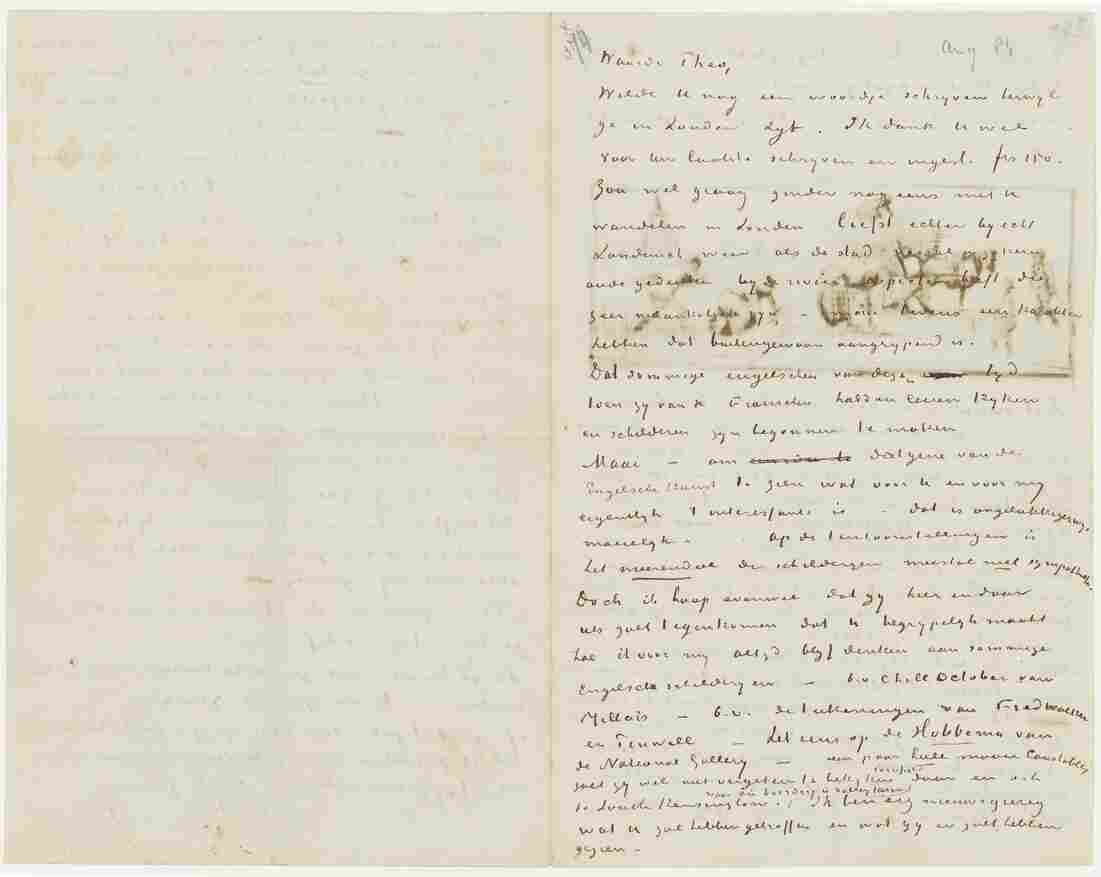 Aug 84
Waarde Theo,
Wilde U nog een woordje schrijven terwijl
ge in Londen zijt. Ik dank U wel
voor Uw laatste schrijven en ingesl. frs 150.
Zou wel graag ginder nog eens met U
wandelen in Londen liefst echter bij echt
Londensch weer als de stad
oude gedeelten bij de rivier aspecten heeft die
zeer melankoliek zijn – maar tevens een karakter
hebben dat buitengewoon aangrijpend is.
Dat sommige engelschen van dezen tijd
toen zij van de Franschen hadden leeren kijken
en schilderen zijn begonnen te maken
Maar – om datgene van de
Engelsche kunst te zien wat voor U en voor mij
eigentlijk 't interessante is – dat is ongelukkigerwijs
moeielijk. Op de tentoonstellingen is
het meerendeel der schilderijen meestal niet sympathiek.
Doch ik hoop evenwel dat gij hier en daar
iets zult tegenkomen dat U begrijpelijk maakt
hoe ik voor mij altijd blijf denken aan sommige
Engelsche schilderijen – b.v. Chill October van
Millais – b.v. de teekeningen van Fred Walker
en Pinwell – Let eens op de Hobbema van
de National Gallery – een paar heele mooie Constables
zult gij wel niet vergeten te bekijken daar en ook
te South Kensington. Ik ben erg nieuwsgierig
wat U zal hebben getroffen en wat gij er zult hebben
gezien –